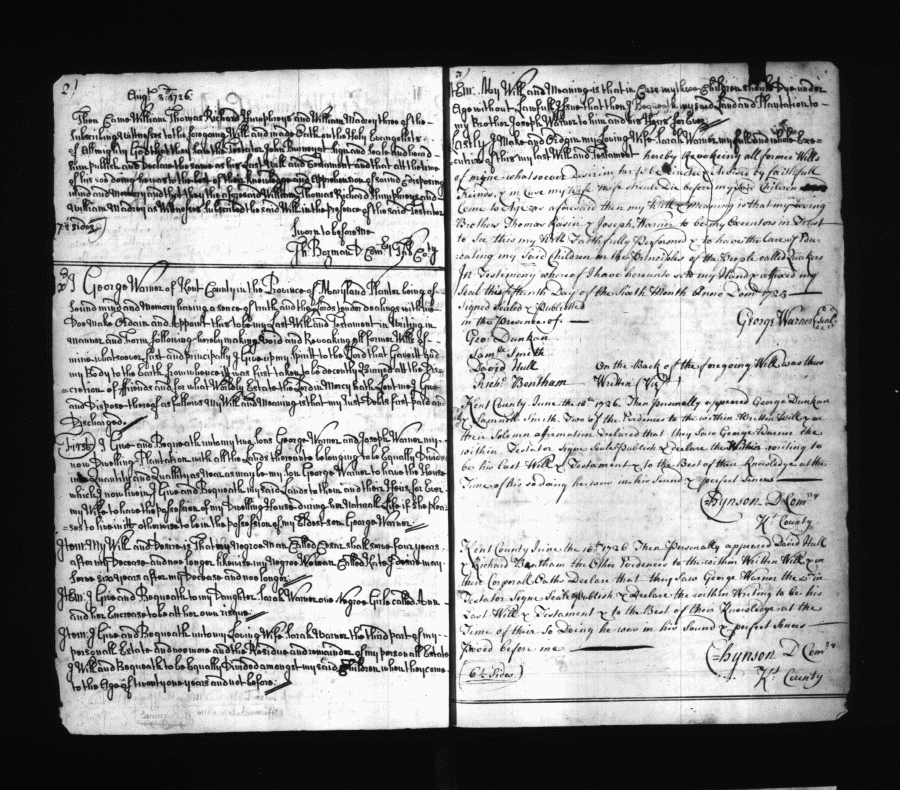 2)
Augt 3d 1726.
Then Came William Thomas Richard Humphreys and William Madery three of the
Subscribing witnesses to the foregoing Will and made Oath on the holy Evangelists
of allmighty God that they saw the Testator John Burment sign and Seale and hear
him publish and Declare the same as his Last Will and testament and that att the time
of his soe doing hee was to the best of their knowledge and Apprehension of sound & disposing
mind and Memory and that they the aforesaid William Thomas Richard Humphreys and
William Madery as Witnesses Subscribed the said Will in the presence of the said Testator
7½ sides
Sworn before me
Th: Bozman D. Comry Talb Co:ty
I George Warner of Kent County in the Province of Maryland Planter being of
sound mind and memory having a sence of truth and the Lords tender dealings with me
Doe make Ordain and Appoint this to be my Last Will and Testament in Writing in
manner and form following hereby making Void and Revoaking all former Wills of
mine whatsoever first and principally I Give up my Spirit to the Lord that Gave it and
my Body to the Earth from whence it was first taken to be decently Inter'd att the Dis=
=cretion of ffriends and for what Worldly Estate the Lord in Mercy hath Lent me I Give
and Dispose thereof as follows My Will and Meaning is that my Just Debts first paid and
Discharged
First I Give and Bequeath unto my two sons George Warner and Joseph Warner my
now Dwelling Plantation with all the Lands thereunto belonging to be Equally Divided
in Quantity and Quality as Near as may be my Son George Warner to have the House
which I now live in I Give and Bequeath my said Lands to them and their Heirs for Ever
my Wife to have the possession of my Dwelling House during her Naturall Life if she plea=
=ses to live in itt otherwise to be in the possession of my Eldest son George Warner
Item My Will and Desire is That my Negroe Man Called Cesar shall serve four years
after my Decease and no longer likewise my Negroe Woman Called Kate I desire may
serve six years after my Decease and no longer
Item I Give and Bequeath to my Daughter Sarah Warner one Negroe Girle called
and her Encrease to be all her own
Item I Give and Bequeath unto my Loving Wife Sarah Warner the third part of my
personall Estate and no more and the Residue and remainder of my personall Estate
I Will and Bequeath to be Equally Divided amongst my said Children when they come
to the Age of twenty one years and not before
3)
Item My Will and Meaning is that in Case my three Children should Dye under
Age without Lawfull Issue that then I Bequeath my said Land and Plantation to
my Brother Joseph Warner to him and his Heirs for Ever
Lastly I Make and Ordain my Loving Wife Sarah Warner my full and whole Exe=
cutrix of this my Last Will and Testament hereby Revoaking all former Wills
of mine whatsoever Desireing this to be minded & Advised by faithfull
Friends & in Case my Wife should Die before my said Children
Come to Age as aforesaid then my Will & Meaning is that my Loving
Brothers Thomas Rasin & Joseph Warner to be my Executors in Trust
to See this my Will Faithfully Performed & to have the Care of Edu=
cating my Said Children in the Principles of the People called Quakers
In Testimony whereof I have hereunto sett my Hand & affixed my
Seal this fifteenth Day of the Sixth Month Anno Dom 1723
Signed Sealed & Published
in the Presence of:
George Warner (Seal)
Geo: Dunkan
Samll Smith
David Hull
Richd Bentham
On the Back of the foregoing Will was thus
Written (Vizt)
Kent County June the 16th 1726 Then Personally appeared George Dunkan
& Samuell Smith Two of the Evidences to the within Written Will & on
their Solemn affirmation Declared that they Saw George Warner the
within Testator Signe Seale Publish & Declare the Within writing to
be his last Will & Testament & to the Best of their Knowledge at the
Time of his so doing he was in his Sound & perfect Sences
C hynson D Comry
Kt County
Kent County June the 16th 1726 Then Personally appeared David Hull
& Richard Bentham the Other Evidences to the within Written Will & on
their Corporall Oaths Declare that they Saw George Warner the sd in
Testator Signe Seale Publish & Declare the within Writing to be his
Last Will & Testament & to the Best of their Knowledge at the
Time of their So Doing he was in his Sound & perfect Sences
Sword before me
C hynson D Comry
Kt County
(6½ Sides)